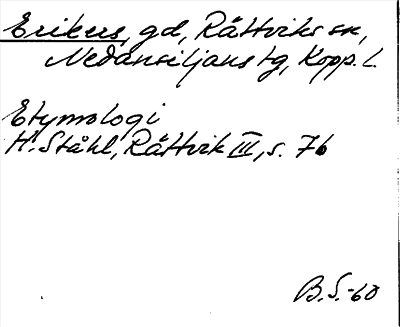 Erikers, gd, Rättviks sn,
Nedansiljans tg, Kopp. l.
Etymologi
H. Ståhl, Rättvik III, s. 76
B. S. -60